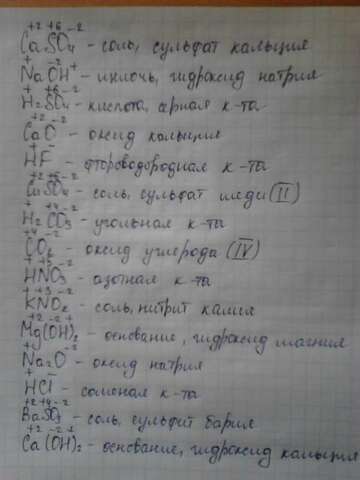 +2 +6 -2
CaSO4 - соль, сульфат кальция
+ -2 +
NaOH - щелочь, гидроксид натрия
+ +6 -2
H2SO4 - кислота, серная к-та
+2 -2
CaO - оксид кальция
+ -
HF - фтороводородная к-та
+2 +6 -2
CuSO4 - соль, сульфат меди (II)
+ +4 -2
H2CO3 - угольная к-та
+4 -2
CO2 - оксид углерода (IV)
+ +5 -2
HNO3 - азотная к-та
+ +3 -2
KNO2 - соль, нитрит калия
+2 -2 +
Mg(OH)2 - основание, гидроксид магния
+ -2
Na2O - оксид натрия
+ -
HCl - соляная к-та
+2 +4 -2
BaSO3 - соль, сульфит бария
+2 -2 +
Ca(OH)2 - основание, гидроксид кальция